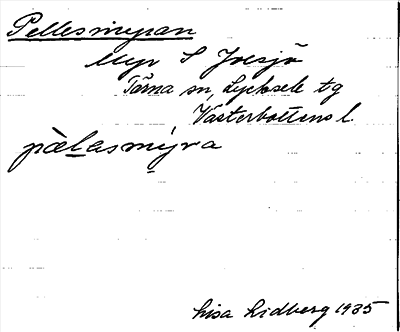 Pellesmyran
Myr S Joesjö
Tärna sn, Lycksele tg
Västerbottens l.
pàlasmýra
Lisa Lidberg 1935